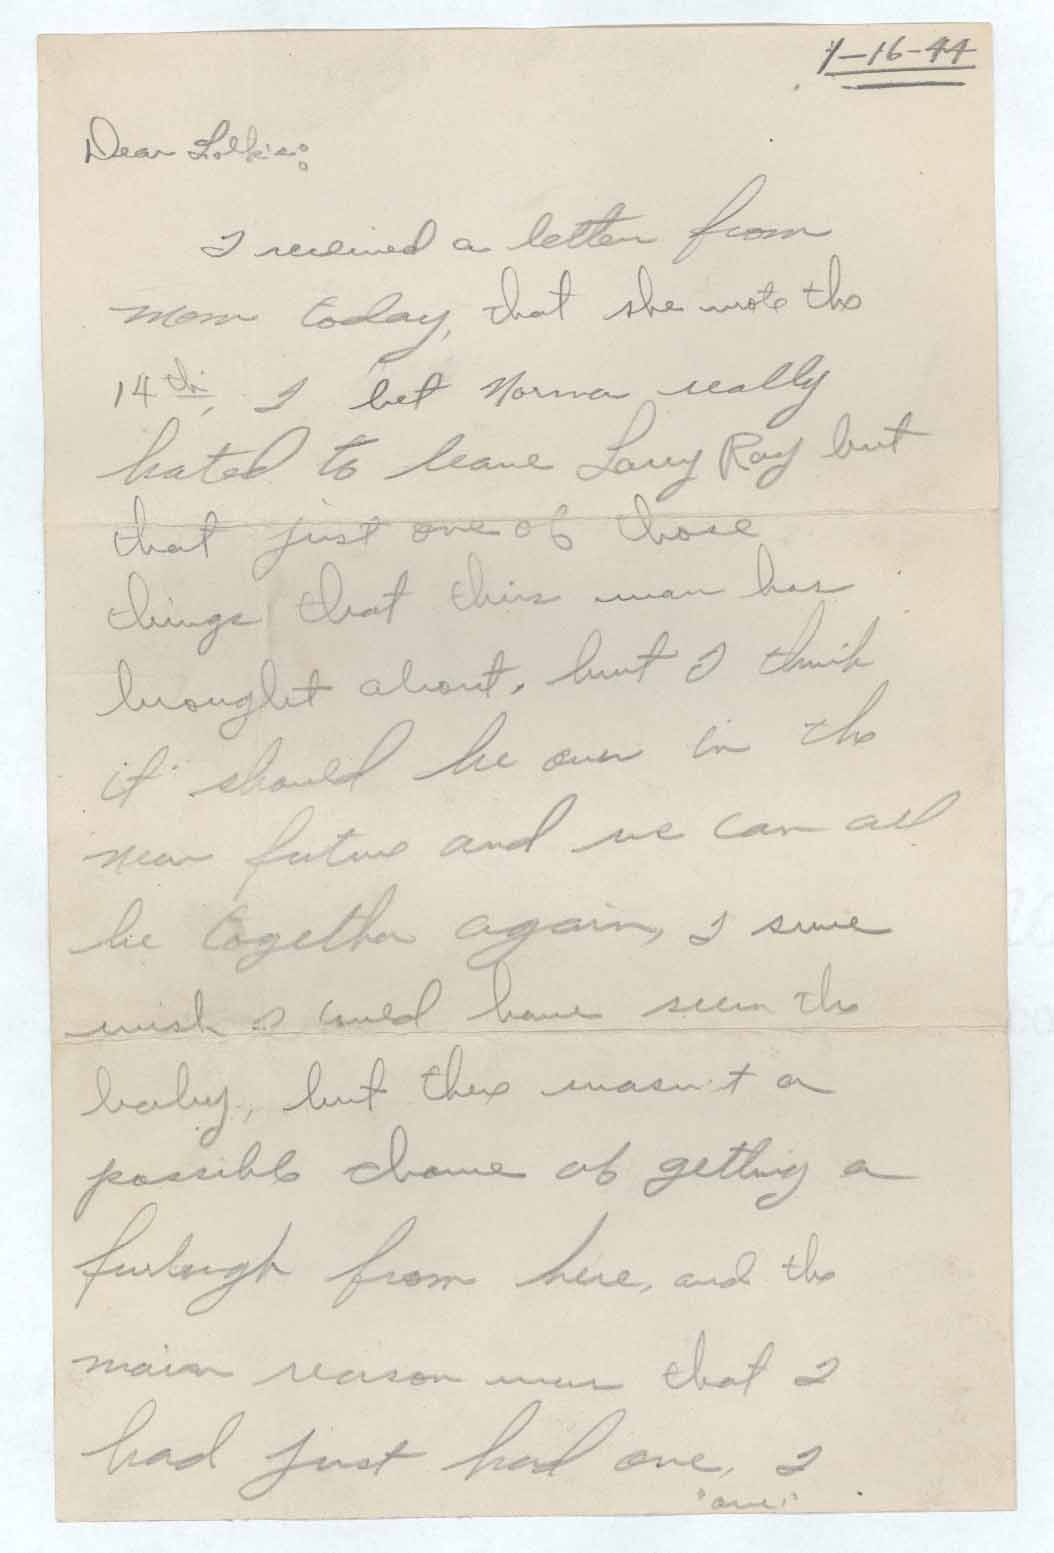 1-16-44
Dear Folkie:
I received a letter from
Mom today, that she wrote the
14th, I bet Norma really
hated to leave Larry Ray but
that just one of those
things that this war has
brought about, but I think
it should be over in the
near future and we can all
be together again, I sure
wish I could have seen the
baby, but there wasn't a
possible chance of getting a
furlough from here, and the
main reason was that I
had just had one, I
"one"